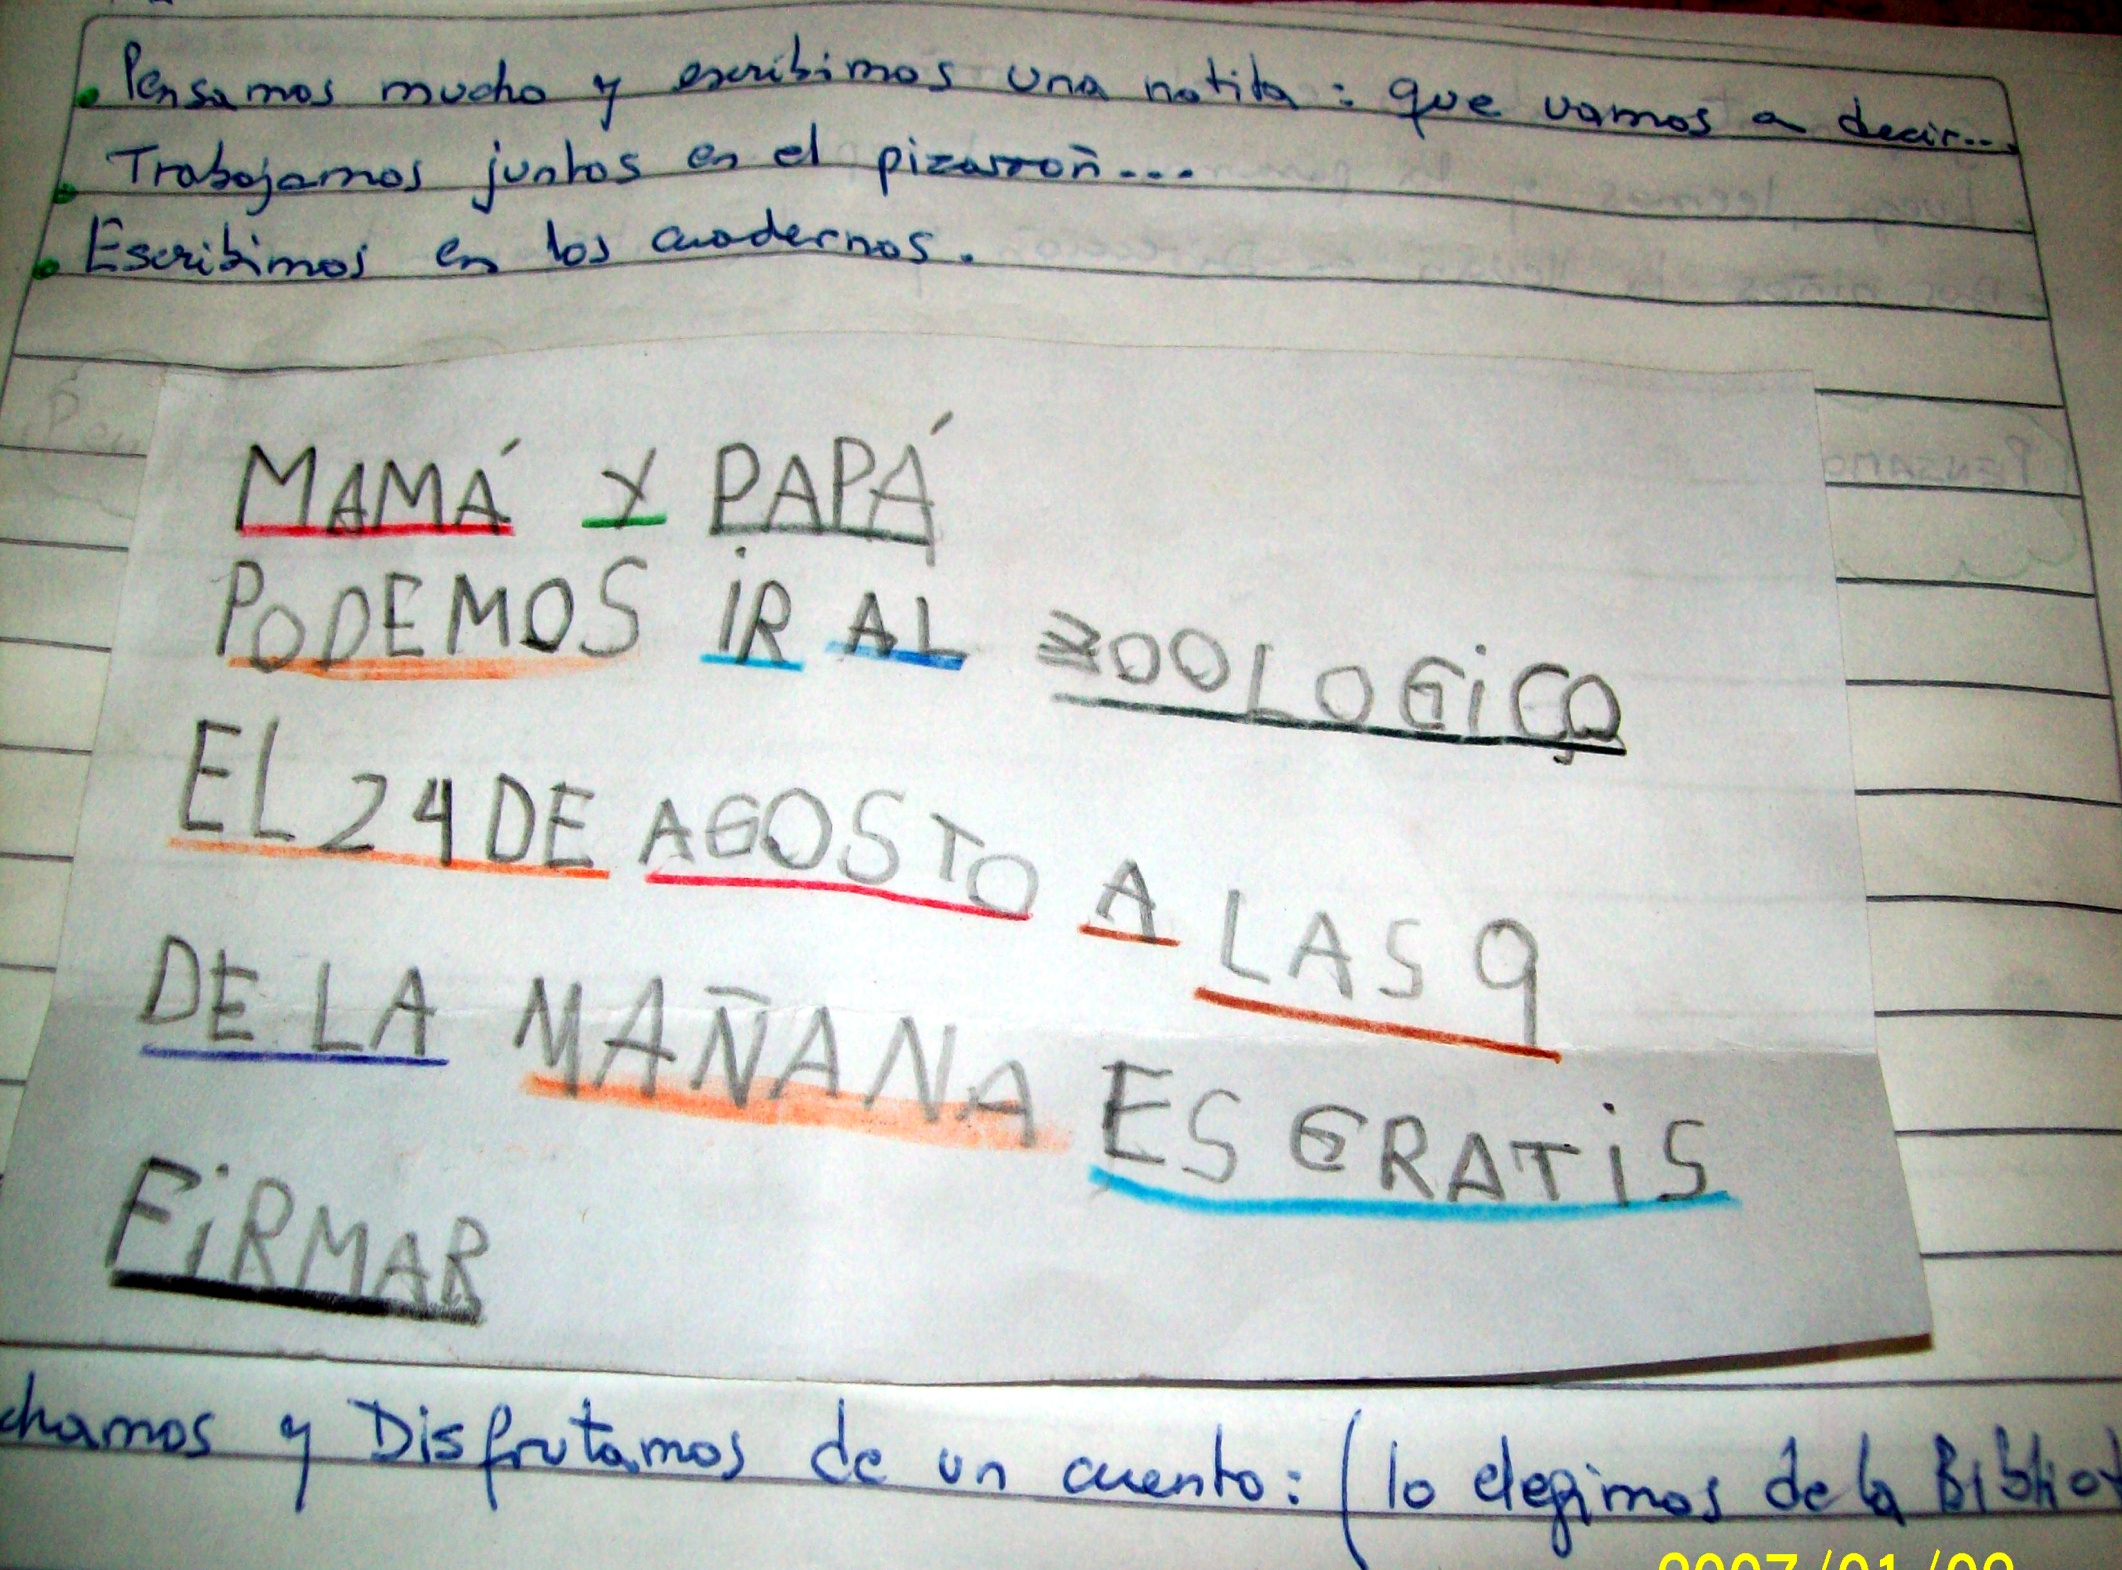 Pensamos mucho y escribimos una notita: que vamos a decir...
Trabajamos juntos en el pizarroñ...
Escribimos en los cuadernos.
MAMÁ Y PAPÁ
PODEMOS IR AL ZOOLOGICO
EL 24 DE AGOSTO A LAS 9
DE LA MAÑANA ES GRATIS
FIRMAR
chamos y Disfrutamos de un cuento: (lo elegimos de la Bibliot